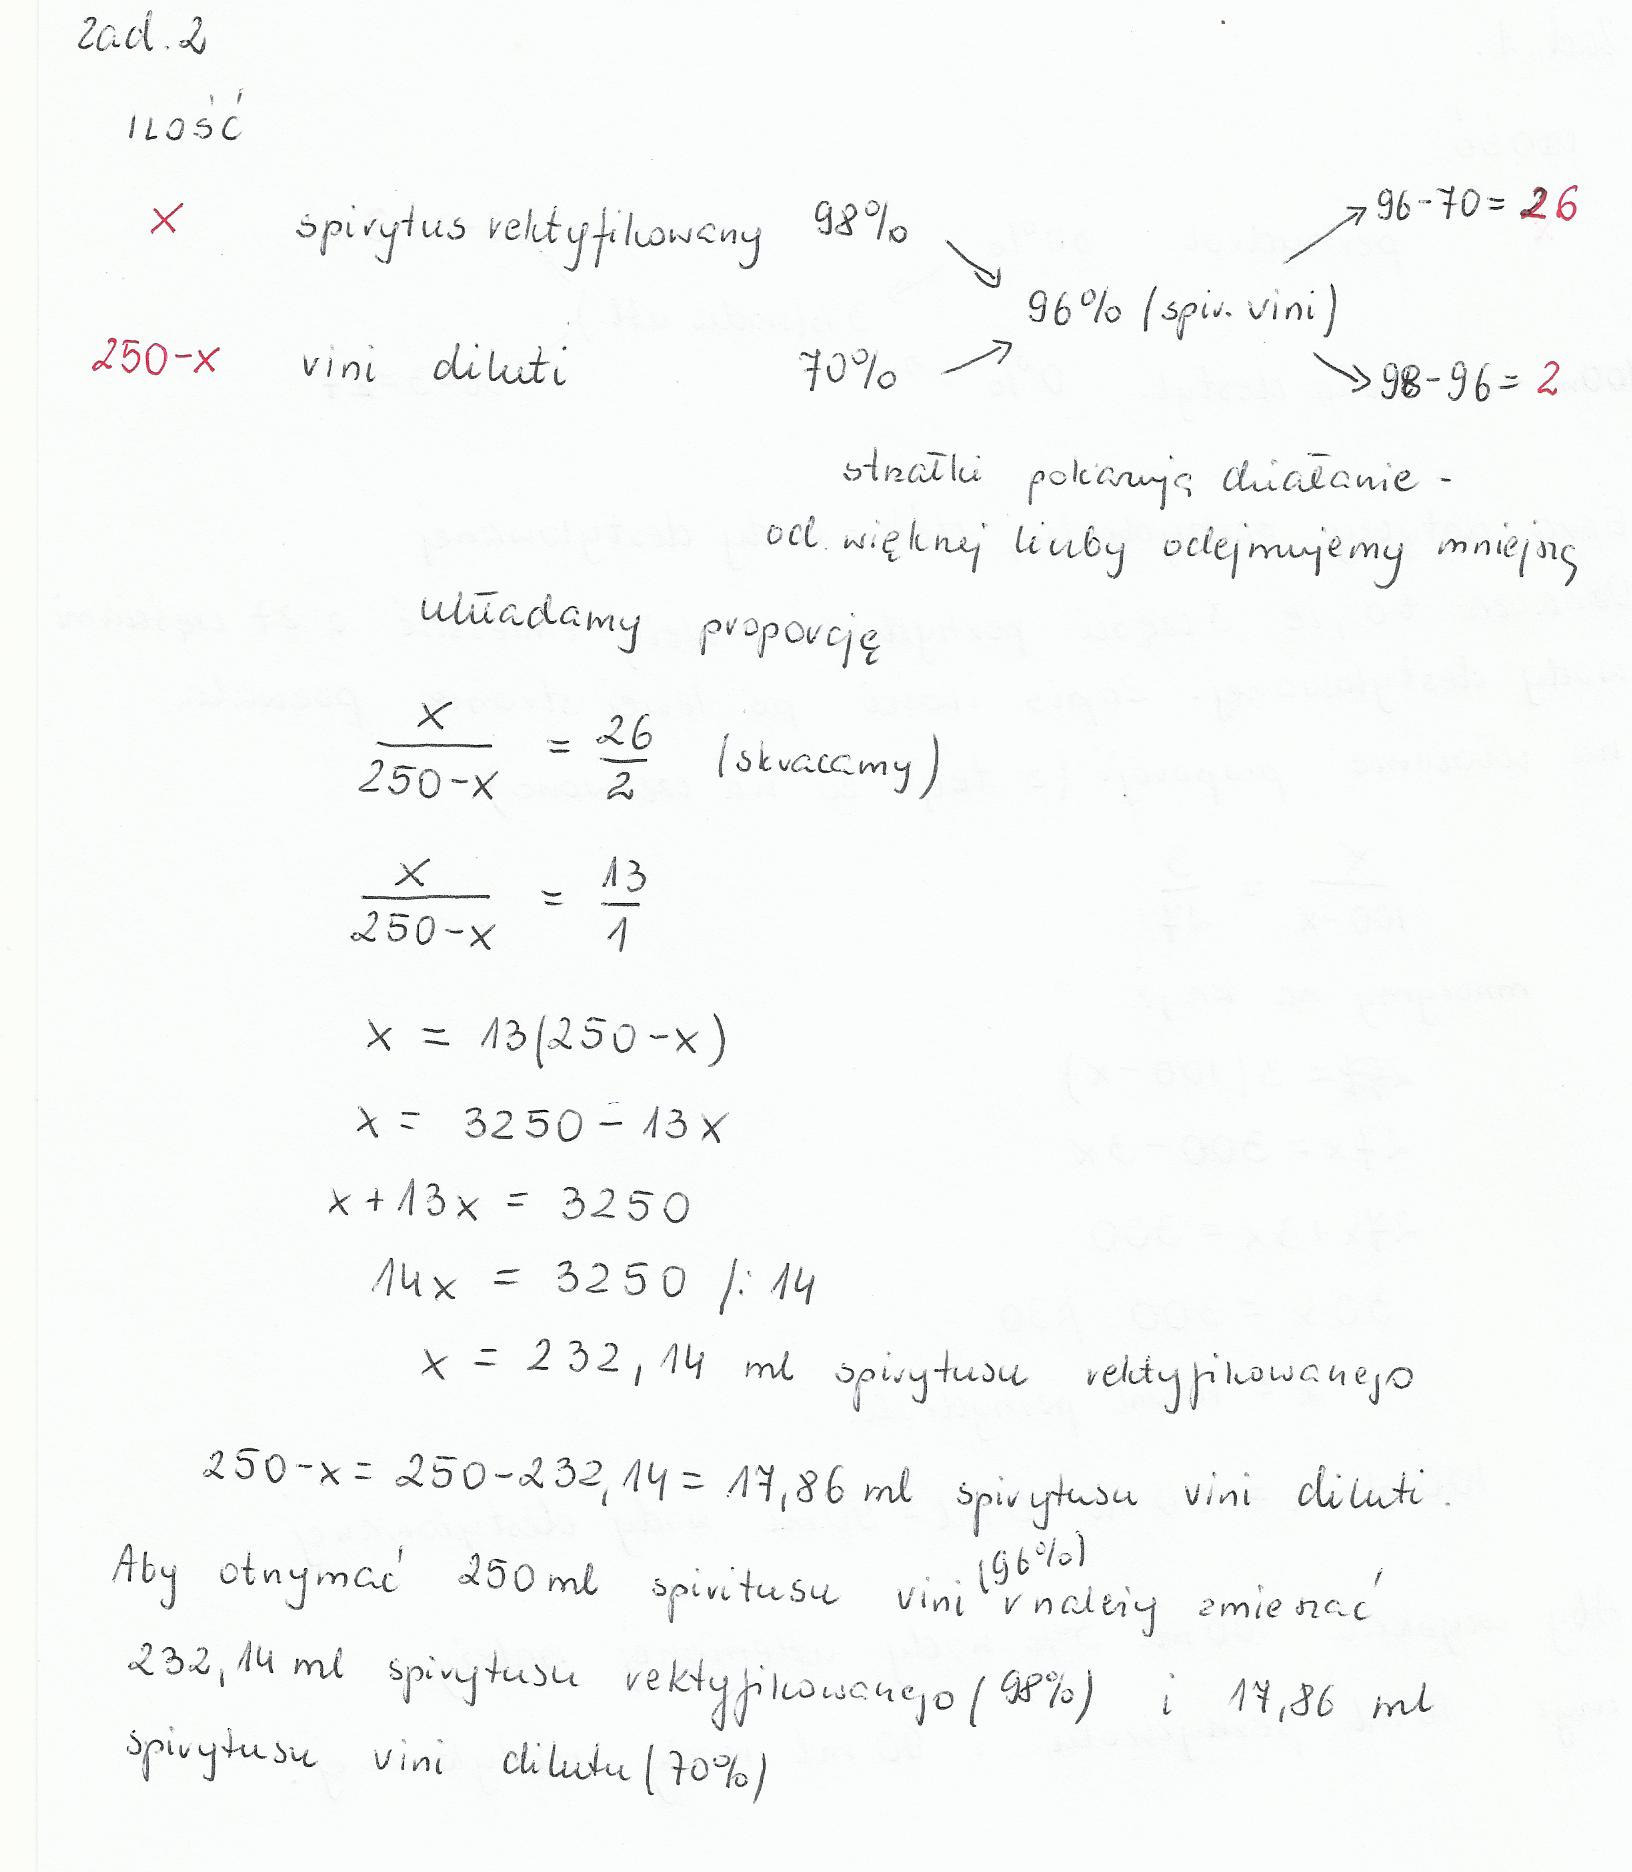 zad. 2
ILOŚĆ
x spirytus rektyfikowany 98% 96-70 = 26
96% (spir. vini)
250-x vini diluti 70% 98-96 = 2
strzałki pokazują działanie -
od większej liczby odejmujemy mniejszą
układamy proporcję
x/(250-x) = 26/2 (skracamy)
x/(250-x) = 13/1
x = 13(250-x)
x = 3250 - 13x
x + 13x = 3250
14x = 3250 /: 14
x = 232,14 ml spirytusu rektyfikowanego
250-x = 250-232,14 = 17,86 ml spirytusu vini diluti.
Aby otrzymać 250 ml spiritusu vini (96%) należy zmieszać
232,14 ml spirytusu rektyfikowanego (98%) i 17,86 ml
spirytusu vini dilutu (70%)